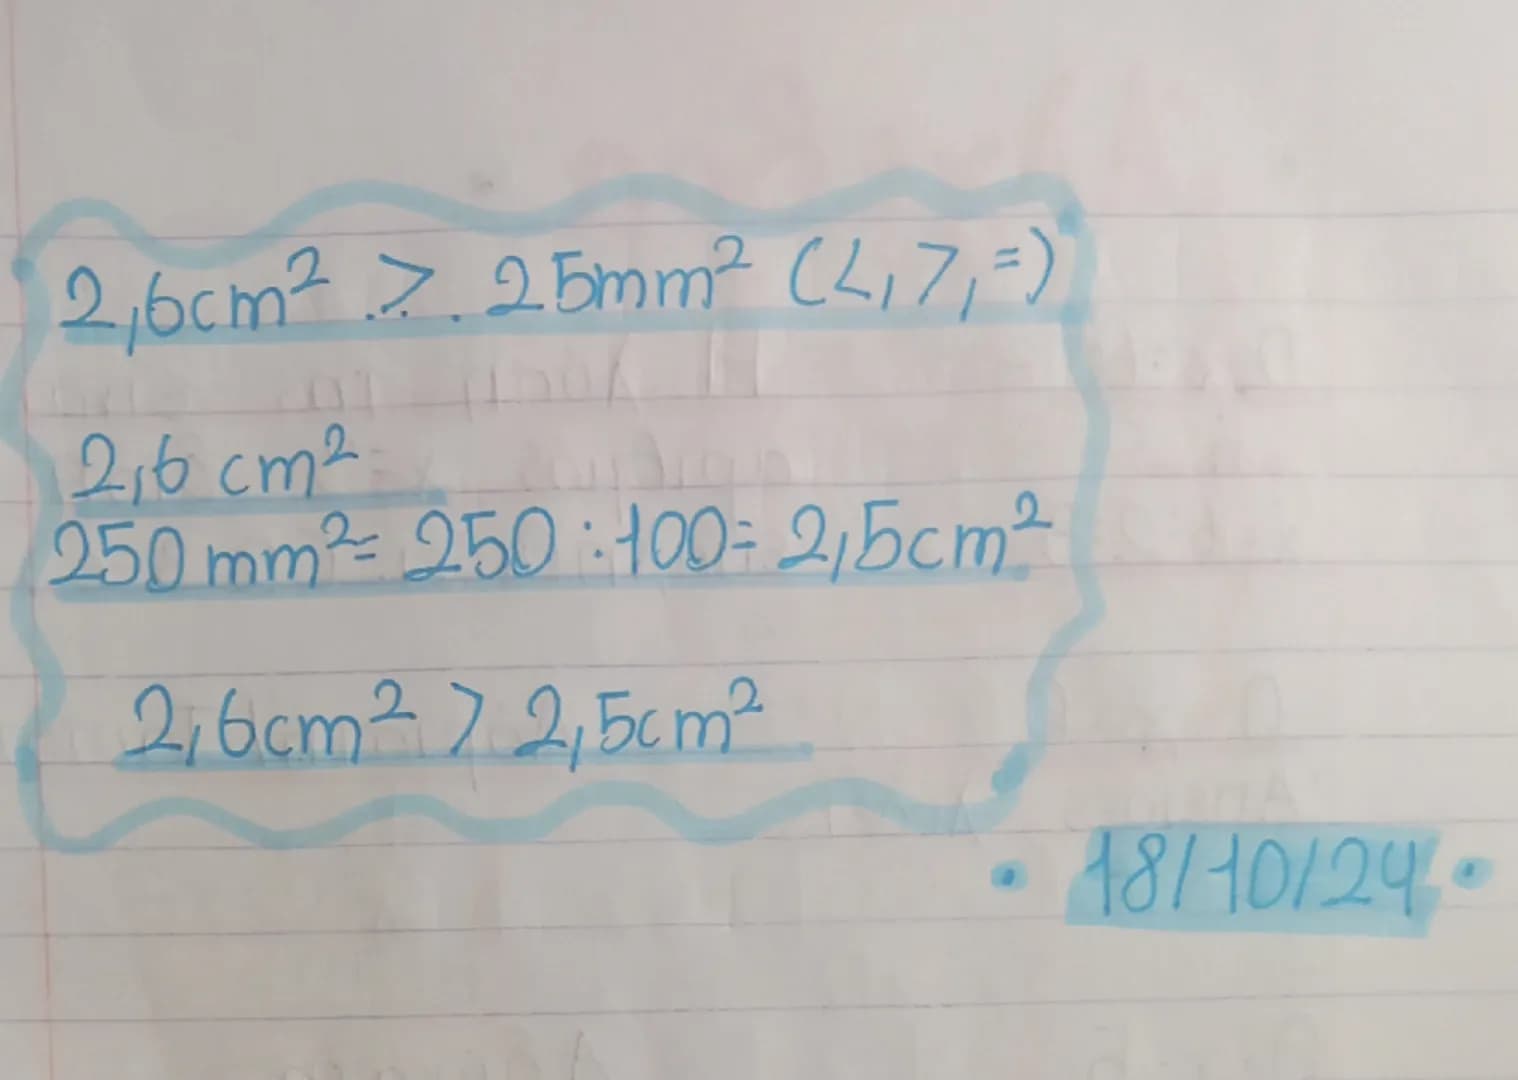 2,6cm² .>. 25mm² (<,>,=)
2,6 cm²
250 mm² = 250 : 100 = 2,5cm²
2,6cm² > 2,5cm²
• 18/10/24 •